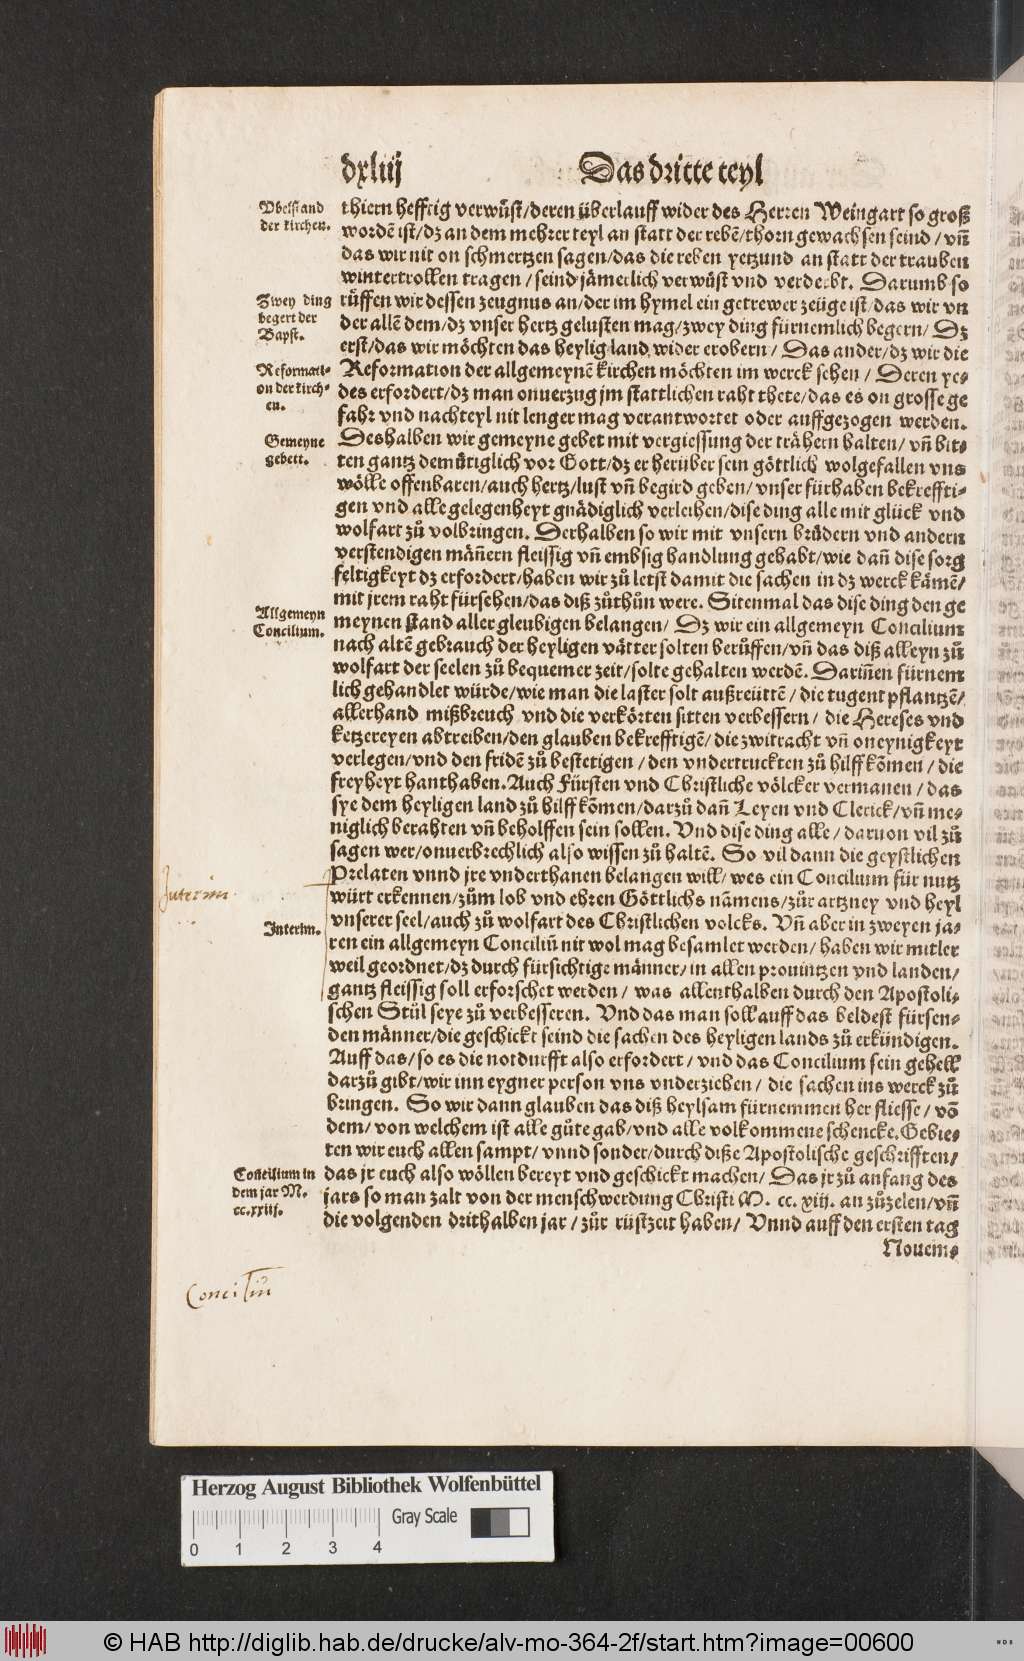 dxliij
Das dritte teyl
Vbelstand
der kirchen.
thiern hefftig verwüst/deren überlauff wider des Herren Weingart so groß
wordē ist/dz an dem mehrer teyl an statt der rebē/thorn gewachsen seind/vñ
das wir nit on schmertzen sagen/das die reben yetzund an statt der trauben
wintertrollen tragen/seind jämerlich verwüst vnd verderbt. Darumb so
Zwey ding
begert der
Bapst.
rüffen wir dessen zeugnus an/der im hymel ein getrewer zeüge ist/das wir vn
der allē dem/dz vnser hertz gelusten mag/zwey ding fürnemlich begern/Dz
erst/das wir möchten das heylig land wider erobern/Das ander/dz wir die
Reformati-
on der kirch-
en.
Reformation der allgemeynē kirchen möchten im werck sehen/Deren ye-
des erfordert/dz man onuerzug jm stattlichen raht thete/das es on grosse ge
fahr vnd nachteyl nit lenger mag verantwortet oder auffgezogen werden.
Gemeyne
gebett.
Deshalben wir gemeyne gebet mit vergiessung der trähern halten/vñ bit-
ten gantz demütiglich vor Gott/dz er herüber sein göttlich wolgefallen vns
wölle offenbaren/auch hertz/lust vñ begird geben/vnser fürhaben bekreffti-
gen vnd alle gelegenheyt gnädiglich verleihen/dise ding alle mit glück vnd
wolfart zů volbringen. Derhalben so wir mit vnsern brüdern vnd andern
verstendigen mäñern fleissig vñ embsig handlung gehabt/wie dañ dise sorg
feltigkeyt dz erfordert/haben wir zů letst damit die sachen in dz werck kämē/
mit jrem raht fürsehen/das diß zůthůn were. Sitenmal das dise ding den ge
Allgemeyn
Concilium.
meynen stand aller gleubigen belangen/Dz wir ein allgemeyn Concilium
nach altē gebrauch der heyligen vätter solten berüffen/vñ das diß alleyn zů
wolfart der seelen zů bequemer zeit/solte gehalten werdē. Dariñen fürnem
lich gehandlet würde/wie man die laster solt außreüttē/die tugent pflantzē/
allerhand mißbreuch vnd die verkörten sitten verbessern/die Hereses vnd
ketzereyen abtreiben/den glauben bekrefftigē/die zwitracht vñ oneynigkeyt
verlegen/vnd den fridē zů bestetigen/den vndertruckten zů hilff kōmen/die
freyheyt hanthaben. Auch Fürsten vnd Christliche völcker vermanen/das
sye dem heyligen land zů hilff kōmen/darzů dañ Leyen vnd Clerick/vñ me-
niglich berahten vñ beholffen sein sollen. Vnd dise ding alle/daruon vil zů
sagen wer/onuerbrechlich also wissen zů haltē. So vil dann die geystlichen
Interim.
Prelaten vnnd jre vnderthanen belangen will/wes ein Concilium für nutz
würt erkennen/zům lob vnd ehren Göttlichs nāmens/zůr artzney vnd heyl
Interim.
vnserer seel/auch zů wolfart des Christlichen volcks. Vñ aber in zweyen ja-
ren ein allgemeyn Conciliū nit wol mag besamlet werden/haben wir mitler
weil geordnet/dz durch fürsichtige männer/in allen prouintzen vnd landen/
gantz fleissig soll erforschet werden/was allenthalben durch den Apostoli-
schen Stůl seye zů verbesseren. Vnd das man soll auff das beldest fürsen-
den männer/die geschickt seind die sachen des heyligen lands zů erkündigen.
Auff das/so es die notdurfft also erfordert/vnd das Concilium sein gehell
darzů gibt/wir inn eygner person vns vnderziehen/die sachen ins werck zů
bringen. So wir dann glauben das diß heylsam fürnemmen her fliesse/vō
dem/von welchem ist alle gůte gab/vnd alle volkommene schencke. Gebie-
ten wir euch allen sampt/vnnd sonder/durch diße Apostolische geschrifften/
Concilium in
dem jar M.
cc.xxiij.
das jr euch also wöllen bereyt vnd geschickt machen/Das jr zů anfang des
jars so man zalt von der menschwerdung Christi M. cc. xiij. an zůzelen/vñ
die volgenden drithalben jar/zůr rüstzeit haben/Vnnd auff den ersten tag
Nouem-
Conciliū
Herzog August Bibliothek Wolfenbüttel
Gray Scale
0 1 2 3 4
© HAB http://diglib.hab.de/drucke/alv-mo-364-2f/start.htm?image=00600